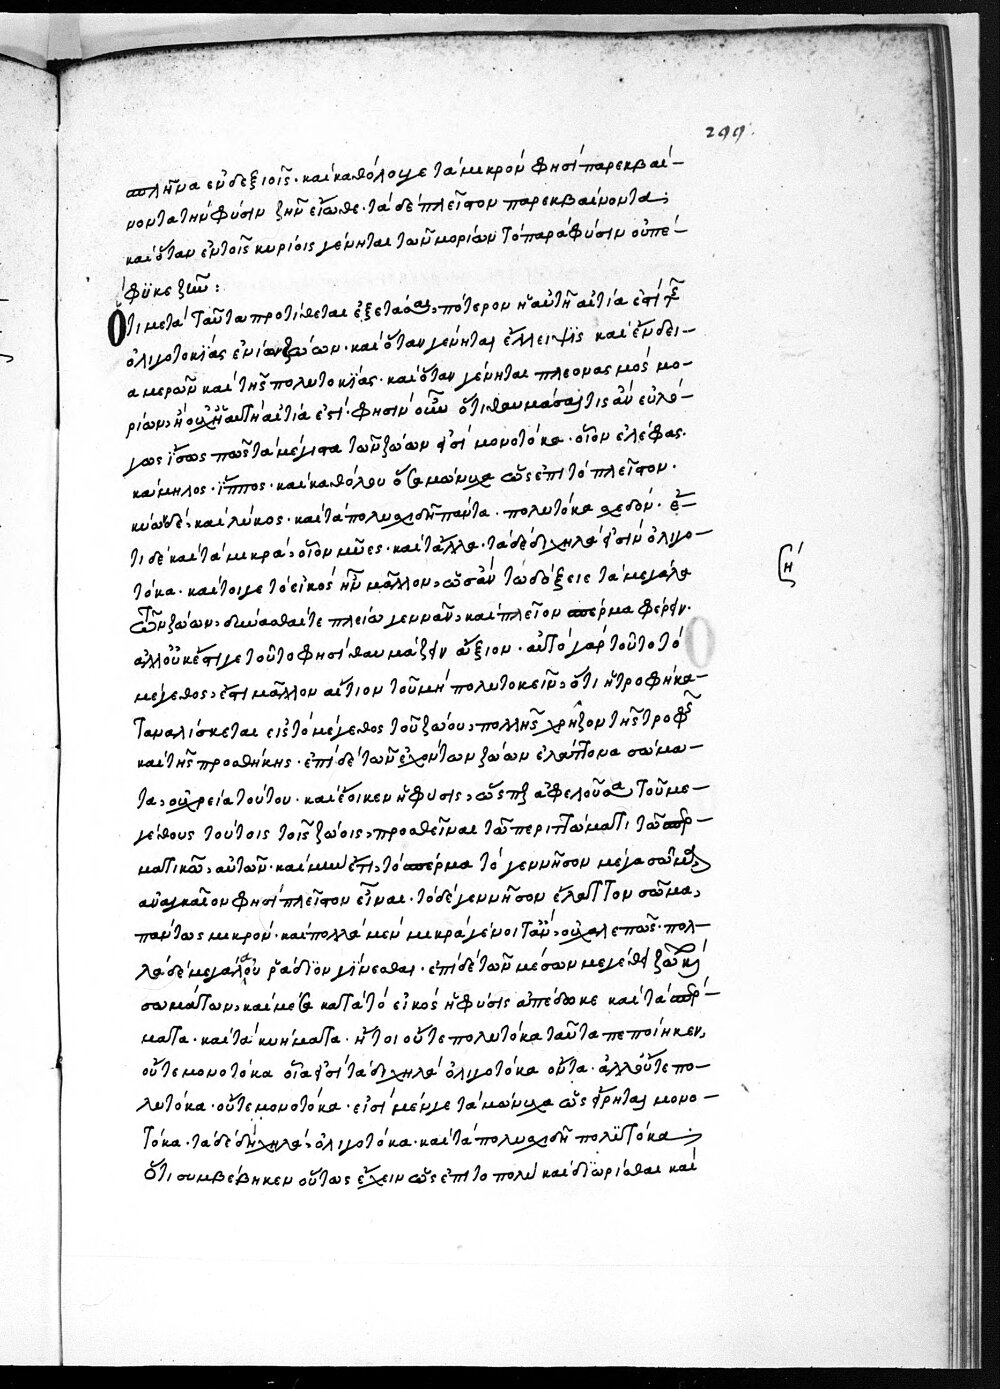 299.
σπλῆνα ἐν δεξιοῖς· καὶ καθόλου γε τὰ μικρόν φησὶ παρεκβαί-
νοντα τὴν φύσιν ζῆν εἴωθε· τὰ δὲ πλεῖστον παρεκβαίνοντα,
καὶ ὅταν ἐν τοῖς κυρίοις γένηται τῶν μορίων τὸ παρὰ φύσιν οὐ πέ-
φυκε ζῆν:
Ὅτι μετὰ ταῦτα προτίθεται ἐξετάσαι, πότερον ἡ αὐτὴ αἰτία ἐστὶ τῆς
ὀλιγοτοκίας ἐνίων ζώων· καὶ ὅταν γένηται ἔλλειψις καὶ ἔνδει-
α μερῶν καὶ τῆς πολυτοκίας· καὶ ὅταν γένηται πλεονασμὸς μο-
ρίων, ἢ οὐχ ἡ αὐτὴ αἰτία ἐστί· φησὶν οὖν ὅτι θαυμάσαι τις ἂν εὐλό-
γως ἴσως πῶς τὰ μέγιστα τῶν ζώων εἰσὶ μονοτόκα· οἷον ἐλέφας·
κάμηλος· ἵππος· καὶ καθόλου ὅσα μώνυχα ὡς ἐπὶ τὸ πλεῖστον·
κύων δὲ, καὶ λύκος· καὶ τὰ πολυσχιδῆ πάντα· πολυτόκα σχεδόν· ἔ-
τι δὲ καὶ τὰ μικρὰ, οἷον μῦες· καὶ τἄλλα· τὰ δὲ διχηλὰ εἰσὶν ὀλιγο-
τόκα· καίτοιγε τὸ εἰκὸς ἦν μᾶλλον, ὡς ἄν τῳ δόξειε τὰ μεγάλα
τῶν ζώων, δύνασθαί τε πλείω γεννᾶν, καὶ πλεῖον σπέρμα φέρειν·
ἀλλ' οὐκ ἔστι γε τοῦτο φησὶ θαυμάζειν ἄξιον· αὐτὸ γὰρ τοῦτο τὸ
μέγεθος, ἐστὶ μᾶλλον αἴτιον τοῦ μὴ πολυτοκεῖν, ὅτι ἡ τροφὴ κα-
ταναλίσκεται εἰς τὸ μέγεθος τοῦ ζώου, πολλῆς χρῇζον τῆς τροφῆς
καὶ τῆς προσθήκης· ἐπὶ δὲ τῶν ἐχόντων ζώων ἐλάττονα σώμα-
τα, οὐ χρεία τούτου· καὶ ἔοικεν ἡ φύσις, ὥσπερ ἀφελοῦσα τοῦ με-
γέθους τούτοις τοῖς ζώοις, προσθεῖναι τῷ περιττώματι τῷ σπερ-
ματικῷ, αὐτῶν· καὶ μὴν ἔτι, τὸ σπέρμα τὸ γεννῆσον μέγα σῶμα,
ἀναγκαῖον φησὶ πλεῖστον εἶναι· τὸ δὲ γεννῆσον ἔλαττον σῶμα,
πάντως μικρόν· καὶ πολλὰ μὲν μικρὰ γένοιτ' ἂν, οὐ χαλεπῶς· πολ-
λὰ δὲ μεγάλα οὐ ῥάδιον γίνεσθαι· ἐπὶ δὲ τῶν μέσων μεγέθει ζώων κὴ
σωμάτων, καὶ μέσα κατὰ τὸ εἰκὸς ἡ φύσις ἀπέδωκε καὶ τὰ σπέρ-
ματα· καὶ τὰ κυήματα· ἤτοι οὔτε πολυτόκα ταῦτα πεποίηκεν,
οὔτε μονοτόκα οἷα εἰσὶ τὰ διχηλὰ ὀλιγοτόκα ὄντα· ἀλλ' οὔτε πο-
λυτόκα· οὔτε μονοτόκα· εἰσὶ μέν γε τὰ μώνυχα ὡς εἴρηται μονο-
τόκα· τὰ δὲ διχηλὰ, ὀλιγοτόκα· καὶ τὰ πολυσχιδῆ πολυτόκα,
ὅτι συμβέβηκεν οὕτως ἔχειν ὡς ἐπὶ τὸ πολὺ καὶ διωρίσθαι καὶ